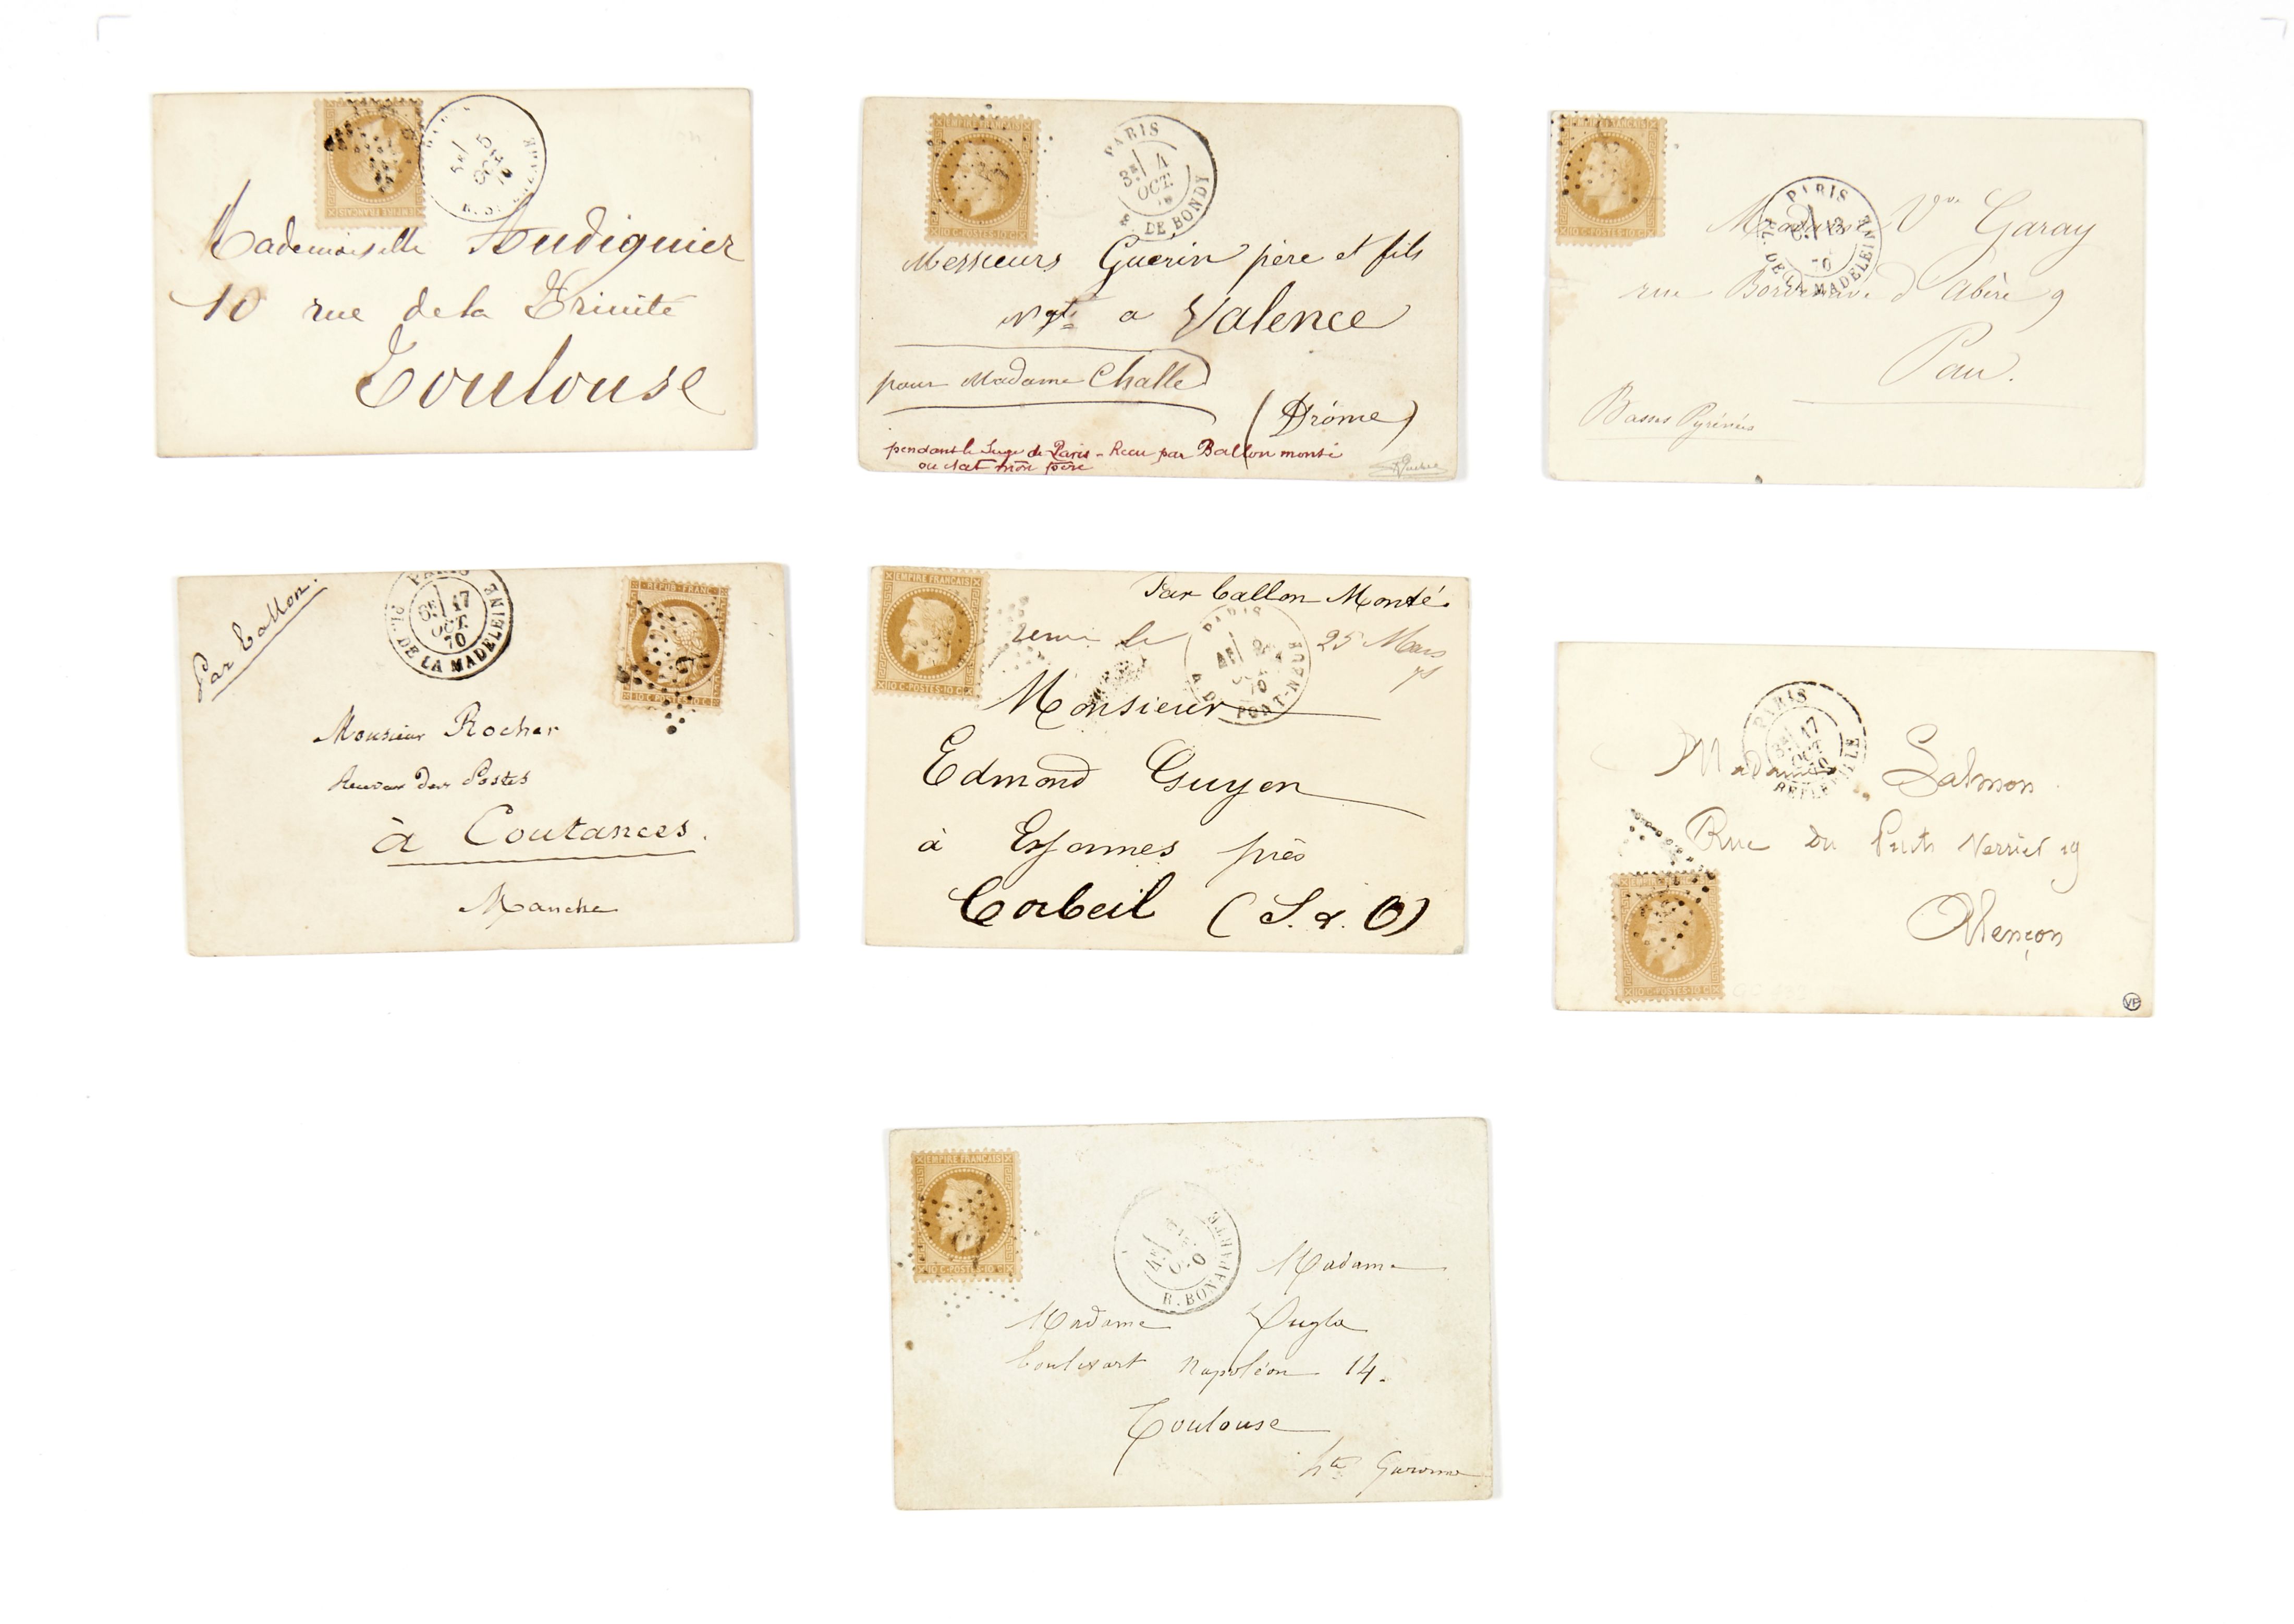 5
R. S
EMPIRE FRANÇAIS
Mademoiselle Audiguier
10 rue de la Trinité
Toulouse
EMPIRE FRANÇAIS
10 C·POSTES·10 C
PARIS
3E 4
OCT.
R. DE BONDY
Messieurs Guerin père et fils
Ngts a Valence
pour Madame Challe
(Drôme)
pendant le Siege de Paris - Recu par Ballon monté
ou etait mon père
EMPIRE FRANÇAIS
10 C·POSTES·10 C
PARIS
13
70
PL. DE LA MADELEINE
Madame Vve Garay
rue Bordenave d'Abère 9
Pau.
Basses Pyrénées
Par ballon.
PARIS
17
OCT.
70
PL. DE LA MADELEINE
REPUB·FRANC
10 C·POSTES·10 C
Monsieur Rocher
des Postes
à Coutances.
Manche
EMPIRE FRANÇAIS
10 C·POSTES·10 C
Par ballon Monté.
remis le 25 Mars
71
PARIS
70
PONT-NEUF
Monsieur
Edmond Guyon
à près
Corbeil (S. & O)
PARIS
3E 17
OCT.
70
Madame Salmon
Rue du Puits Verrier 19
Alençon
EMPIRE FRANÇAIS
10 C·POSTES·10 C
VP
EMPIRE FRANÇAIS
10 C·POSTES·10 C
R. BONAPARTE
Madame
Madame
boulevart Napoléon 14.
Toulouse
hte Garonne